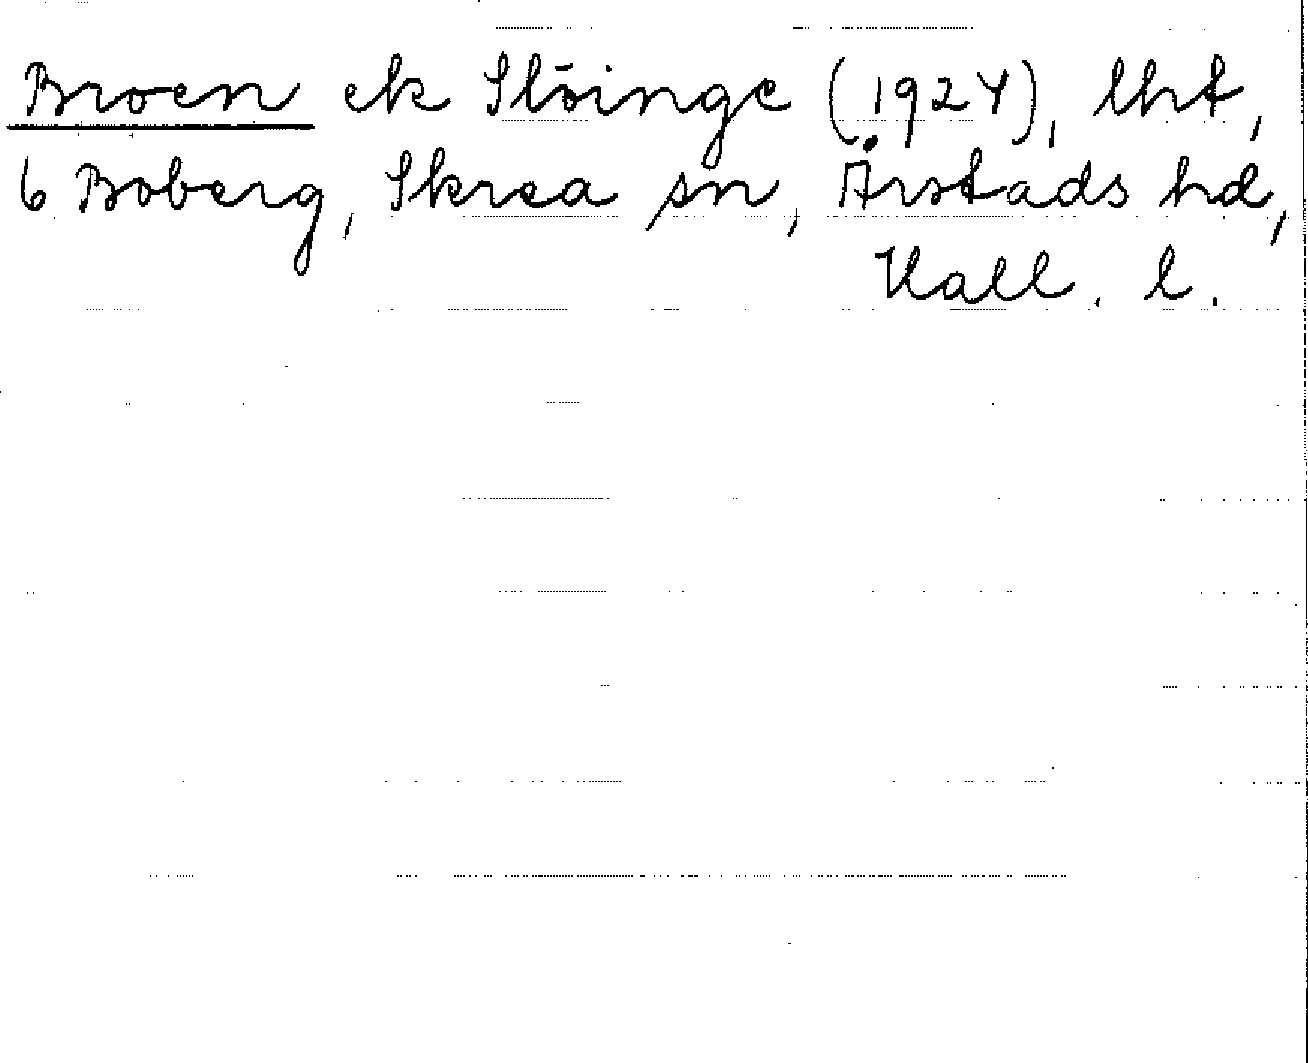 Broen ek Slöinge (1924), lht,
6 Boberg, Skrea sn, Årstads hd,
Hall. l.